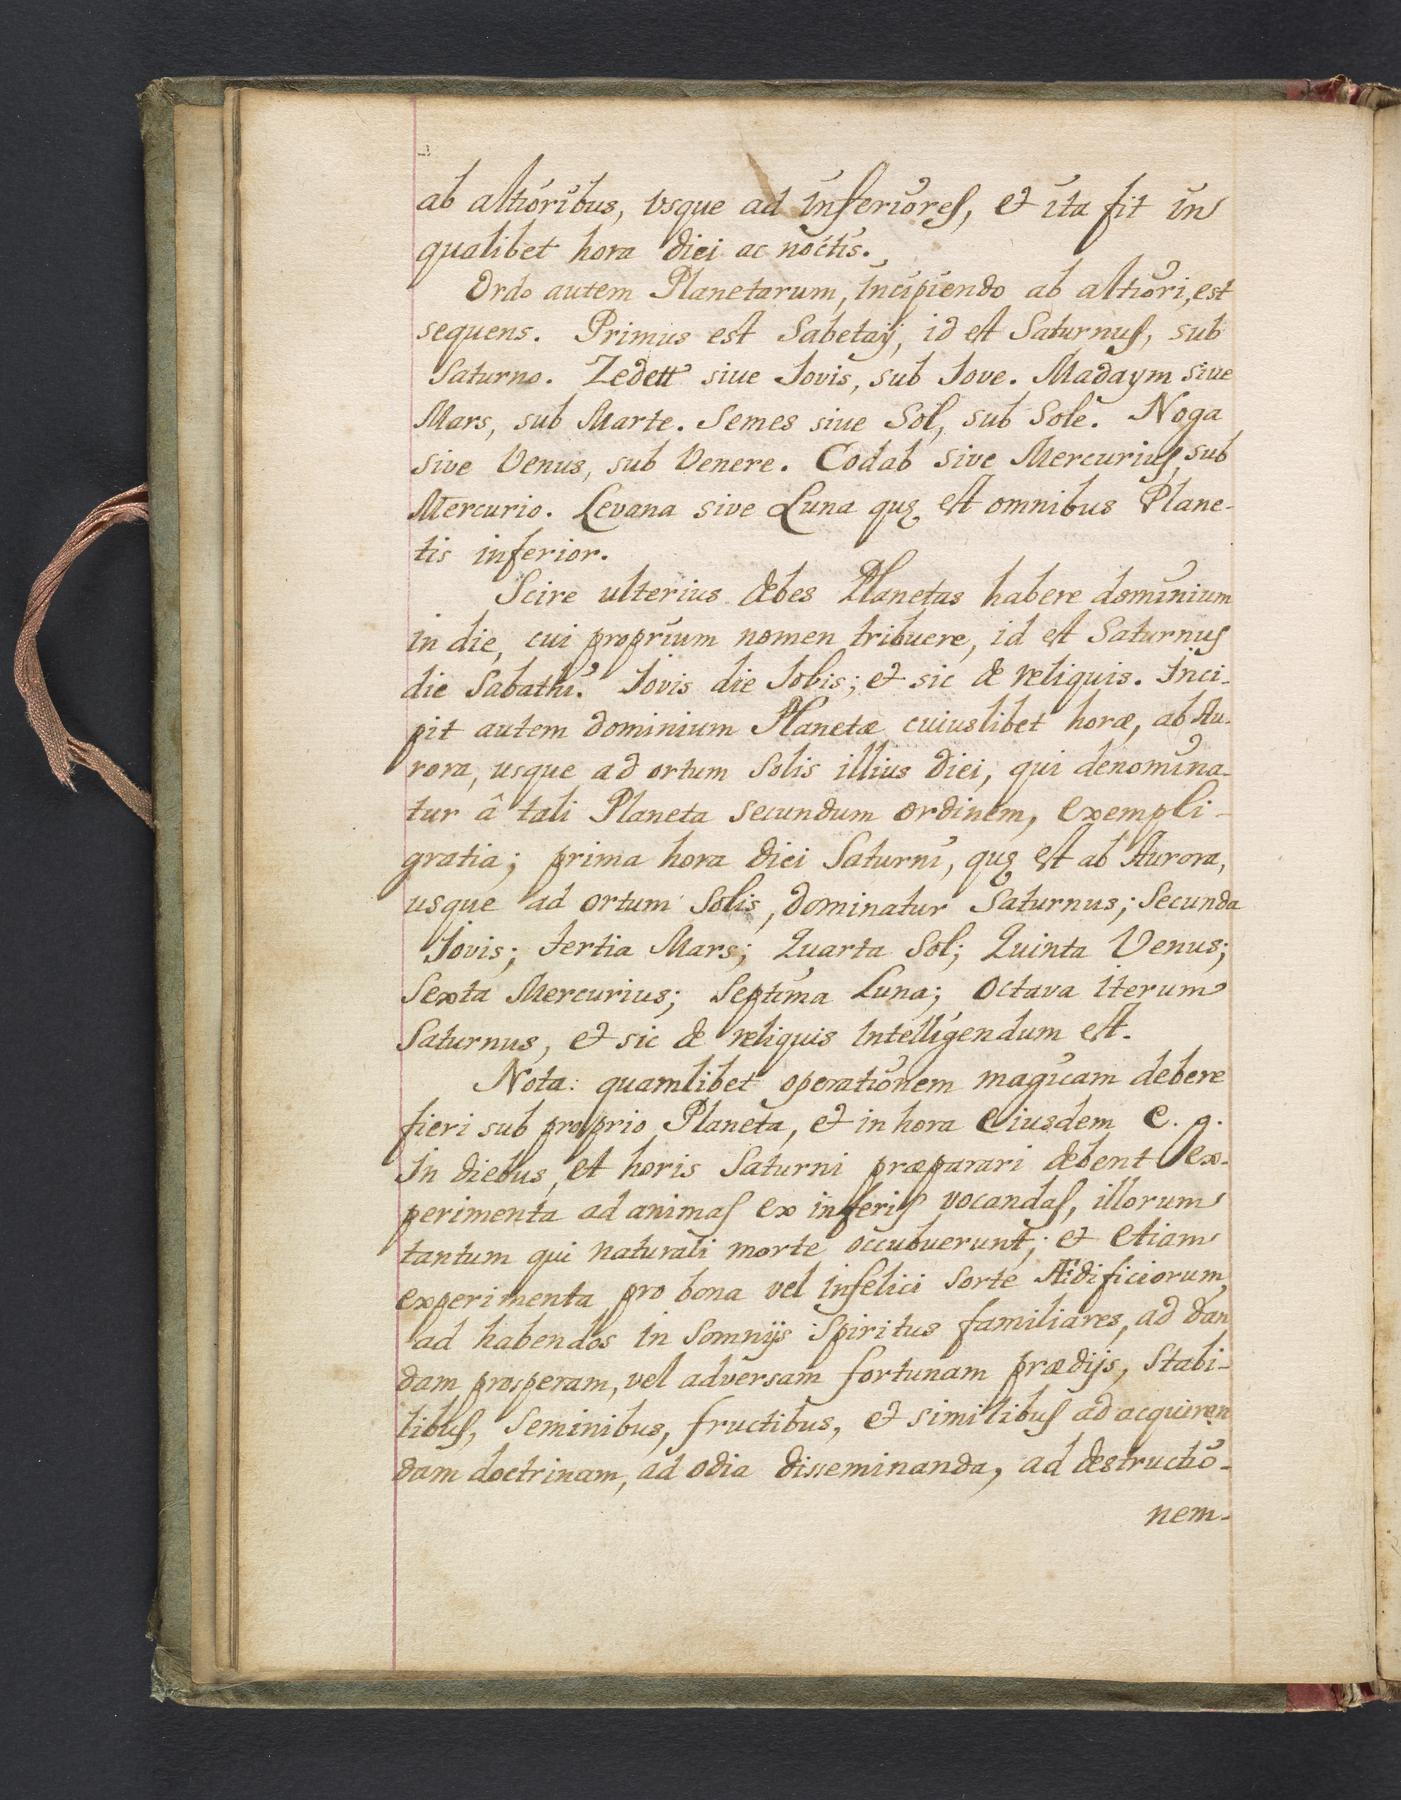 ab altioribus, vsque ad inferiores, et ita fit in
qualibet hora diei ac noctis.
Ordo autem Planetarum, incipiendo ab altiori, est
sequens. Primus est Sabetaÿ, id est Saturnus, sub
Saturno. Zedett siue Iovis, sub Iove. Madaym siue
Mars, sub Marte. Semes siue Sol, sub Sole. Noga
sive Venus, sub Venere. Codab sive Mercurius, sub
Mercurio. Levana sive Luna quę est omnibus Plane-
tis inferior.
Scire ulterius debes Planetas habere dominium
in die, cui proprium nomen tribuere, id est Saturnus
die Sabathi. Iovis die Iobis; et sic de reliquis. Inci-
pit autem dominium Planetæ cuiuslibet horæ, ab Au-
rora, usque ad ortum Solis illius diei, qui denomina-
tur â tali Planeta secundum ordinem, exempli-
gratia; prima hora diei Saturni, quę est ab Aurora,
usque ad ortum Solis, dominatur Saturnus; Secunda
Iovis; tertia Mars; Quarta Sol; Quinta Venus;
Sexta Mercurius; Septima Luna; Octava iterum
Saturnus, et sic de reliquis Intelligendum est.
Nota: quamlibet operationem magicam debere
fieri sub proprio Planeta, et in hora eiusdem e. g.
In diebus, et horis Saturni præparari debent ex-
perimenta ad animas ex inferis vocandas, illorum
tantum qui naturali morte occubuerunt; et etiam
experimenta pro bona vel infelici sorte Ædificiorum,
ad habendos in Somnijs Spiritus familiares, ad dan
dam prosperam, vel adversam fortunam prædijs, Stabi-
libus, Seminibus, fructibus, et similibus ad acquiren
dam doctrinam, ad odia disseminanda, ad destructio-
nem-